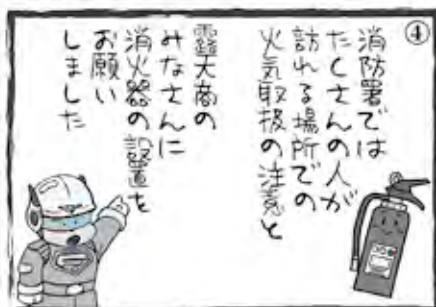 ④
消防署では
たくさんの人が
訪れる場所での
火気取扱の注意と
露天商の
みなさんに
消火器の設置を
お願い
しました